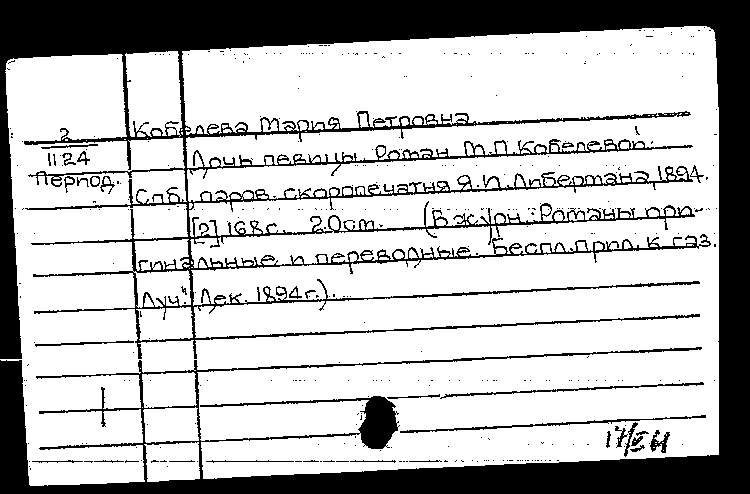 Кобелева, Мария Петровна.
2
1124
Период.
Дочь певицы. Роман М.П. Кобелевой.
Спб., паров. скоропечатня Я.И. Либермана, 1894.
[2], 168 с. 20 см. (В журн.: Романы ори-
гинальные и переводные. Беспл. прил. к газ.
"Луч". Дек. 1894 г.).